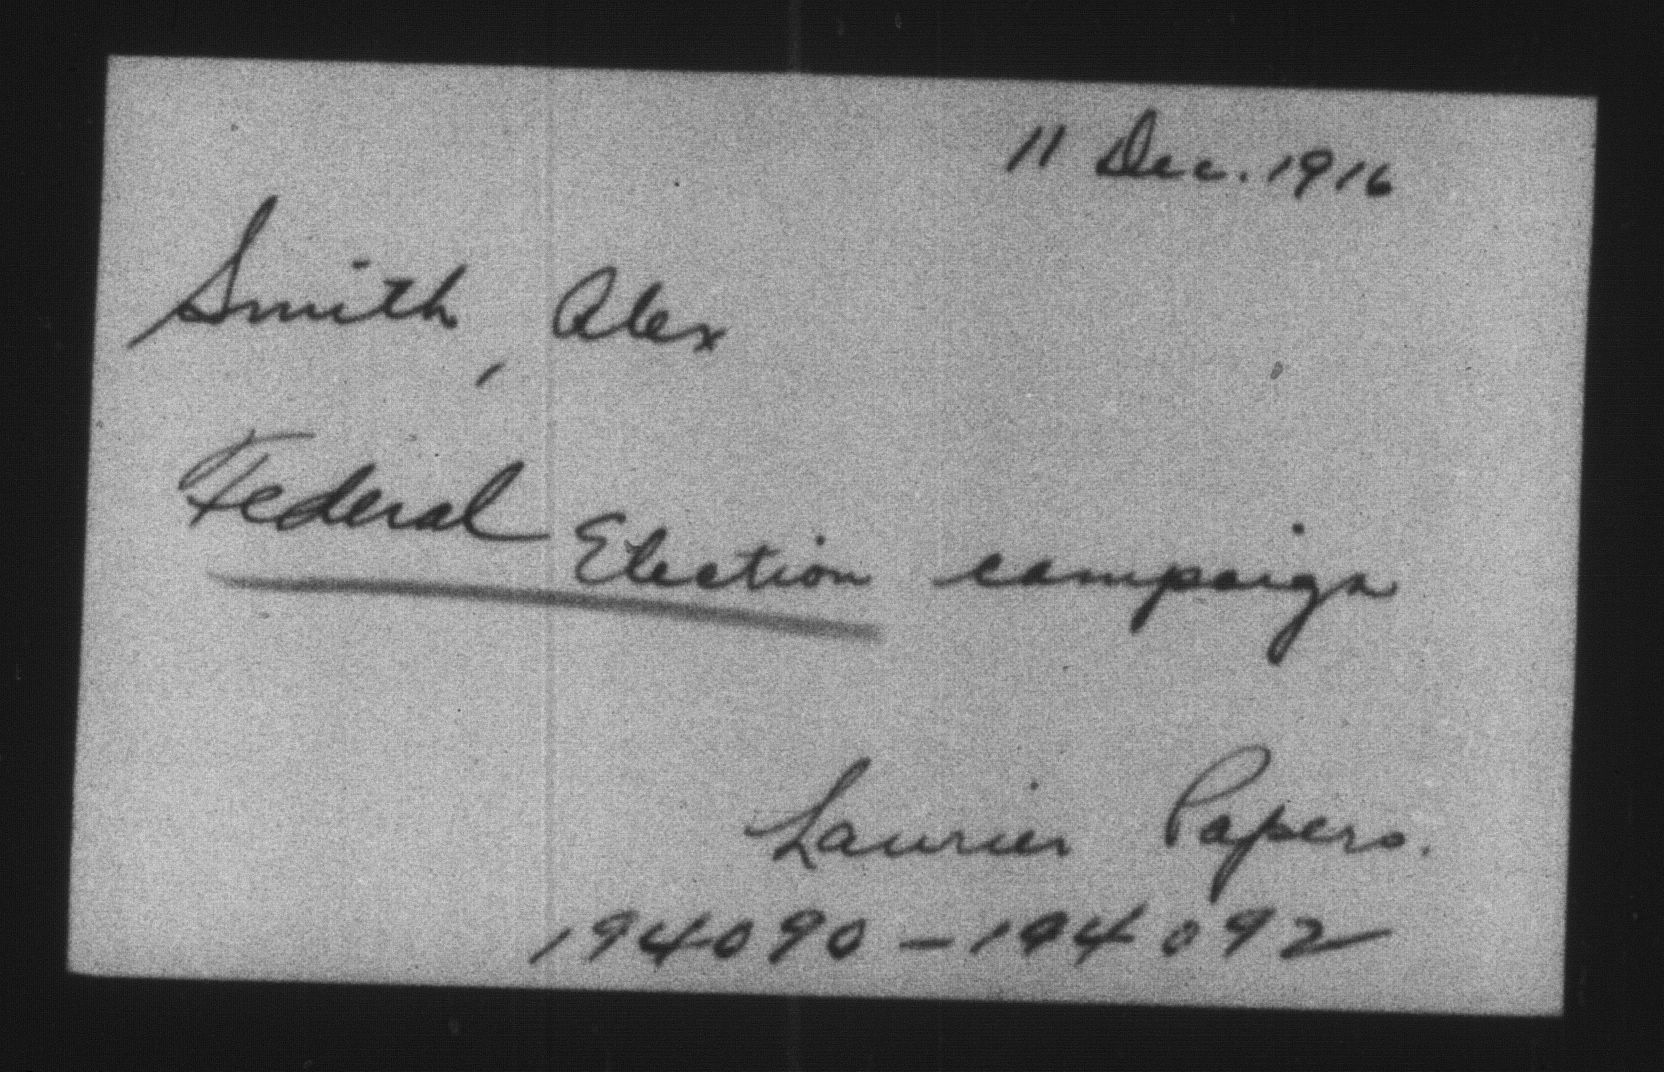 11 Dec. 1916
Smith, Alex
Federal Election campaign
Laurier Papers.
194090-194092